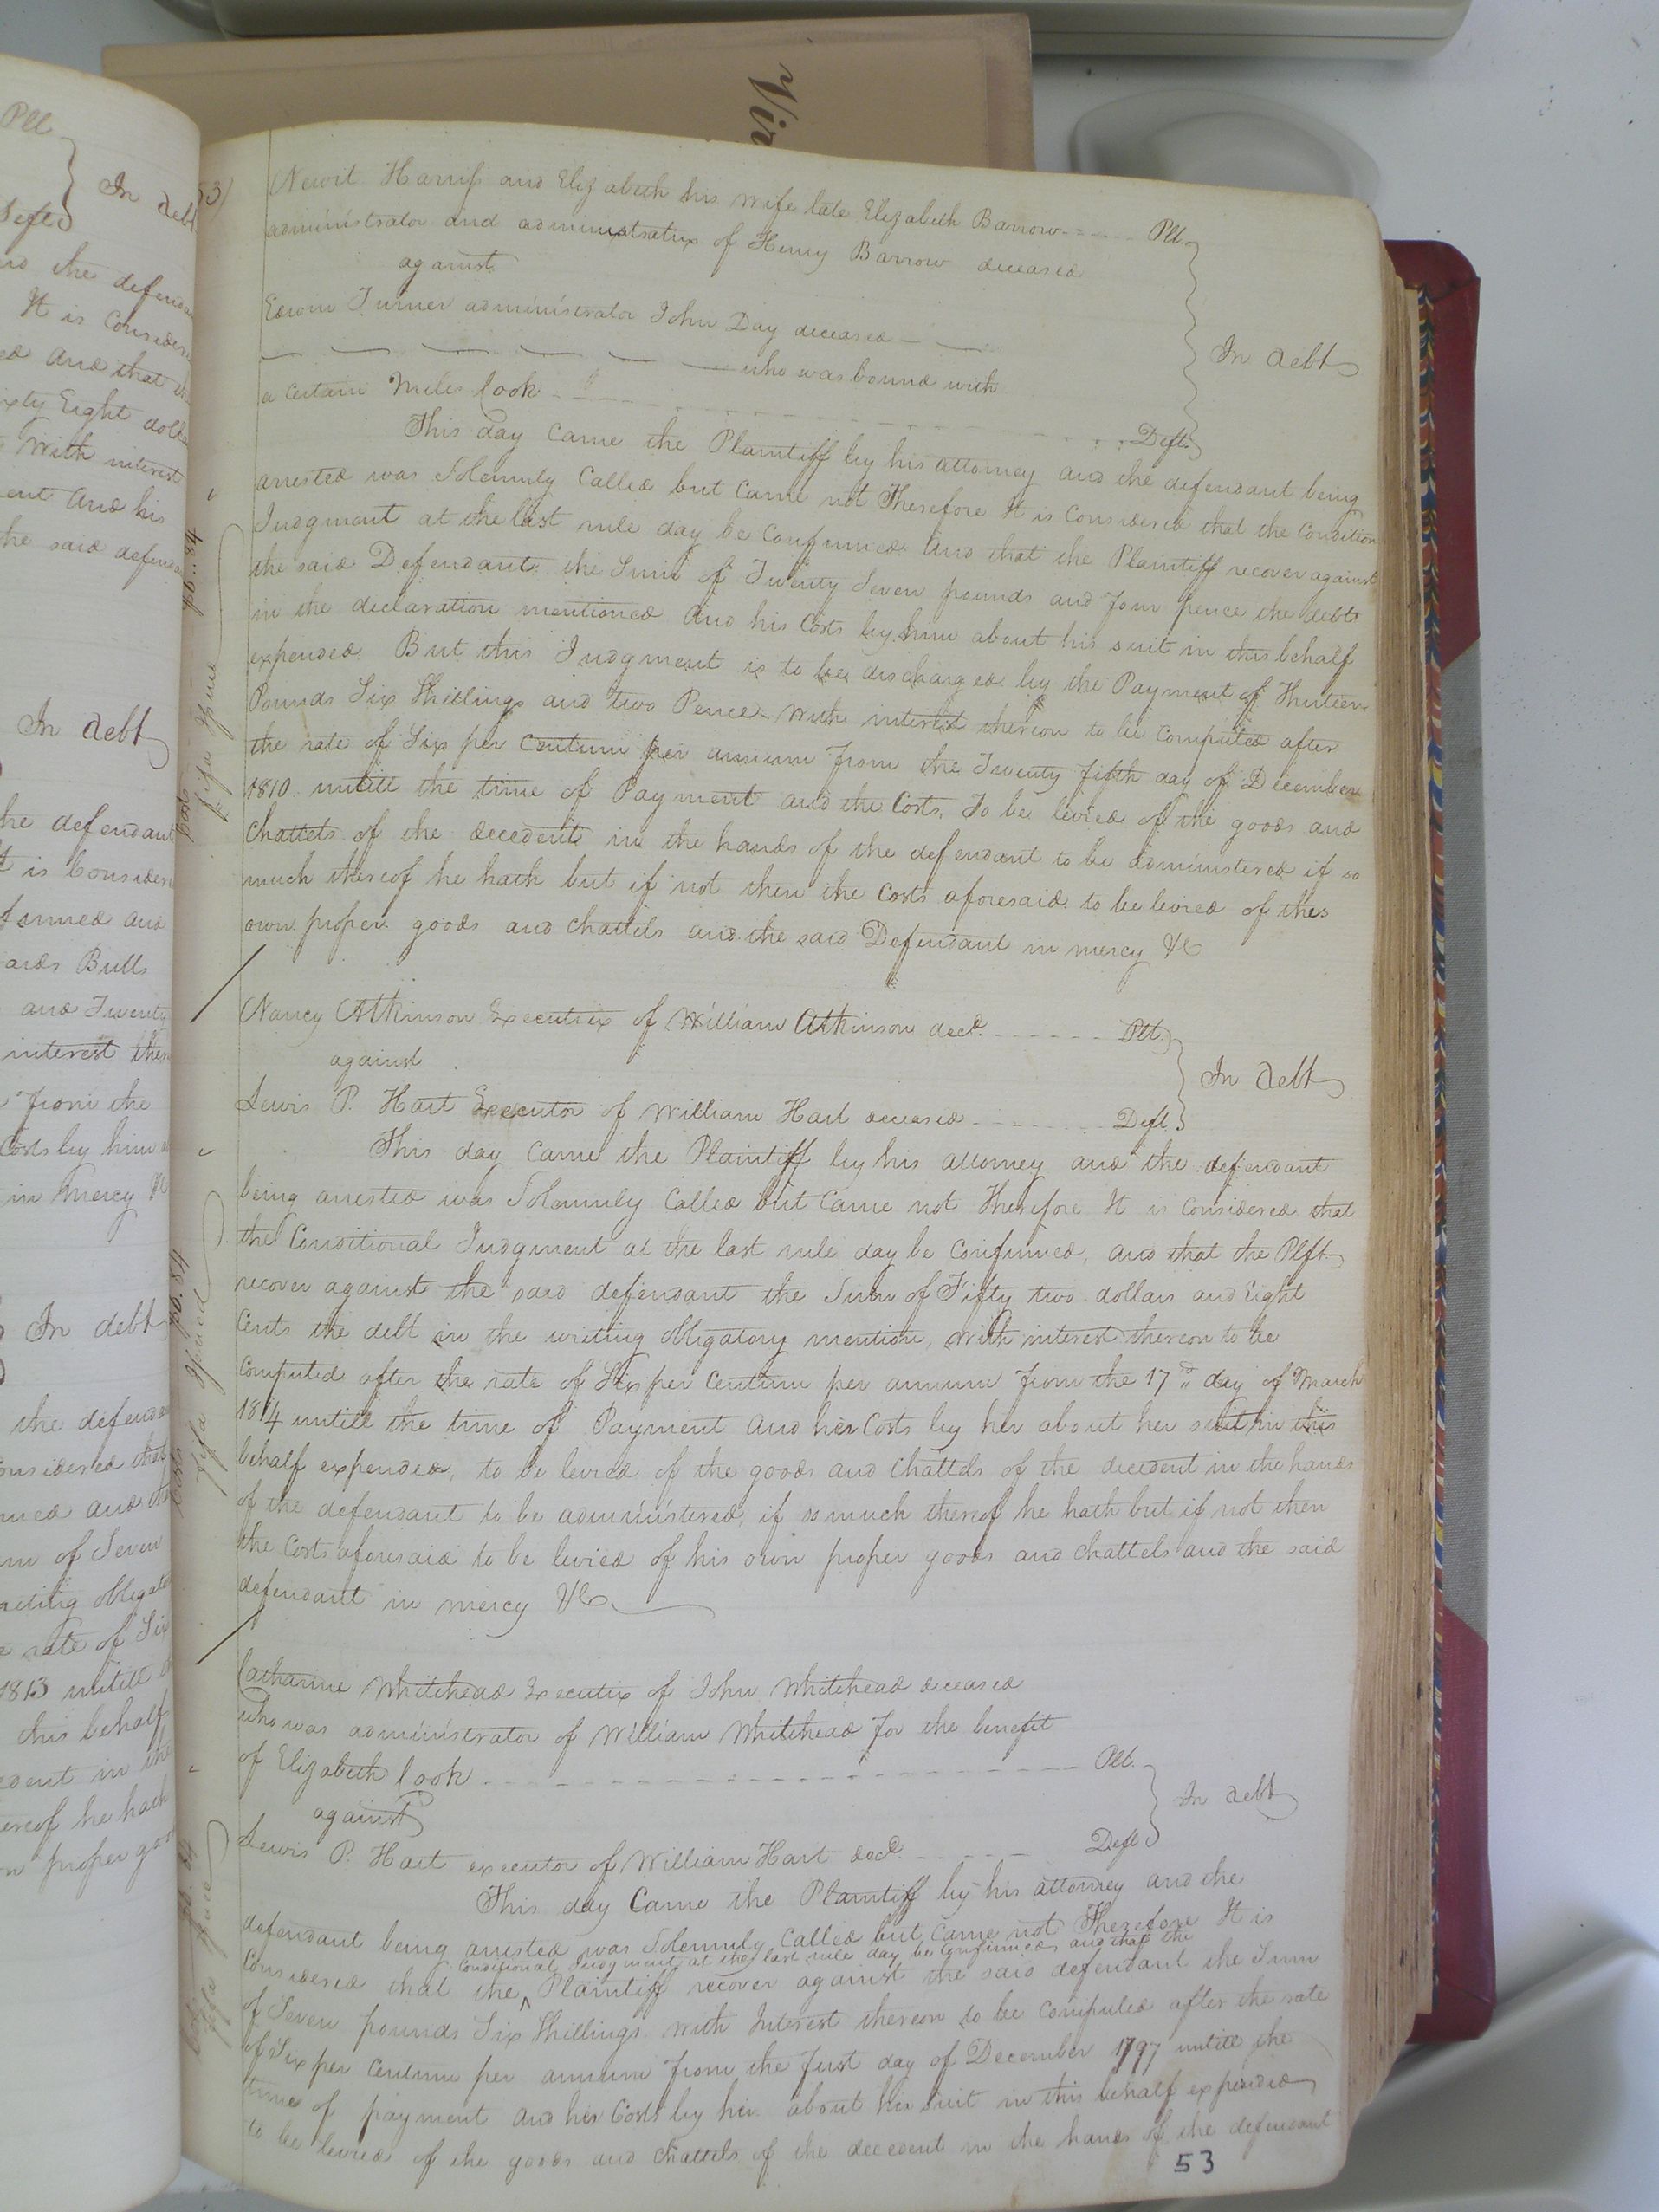 Vir
Pll
In debt
Deft
and the defendant
It is Considered
ed And that the
ixty Eight dollars
With interest
ent And his
the said defendant
In debt
the defendant
It is Considered
firmed and
ards Bulls
and Twenty
interest there
from the
Costs by him
in mercy &c
In debt
the defendant
Considered that
med and that
um of Seven
writing obligatory
e rate of Six
1813 untill
this behalf
cedent in the
thereof he hath
n proper goods
53)
Newit Harriss and Elizabeth his wife late Elizabeth Barrow - - - - - Plt.
administrator and administratrix of Henry Barrow deceased
against
In debt
Edwin Turner administrator John Day deceased - —
— — — — — — who was bound with
a certain Miles Cook - - - - - - - - Deft.
This day came the Plaintiff by his attorney and the defendant being
arrested was Solemnly Called but Came not Therefore It is Considered that the Condition
Judgment at the last rule day be Confirmed And that the Plaintiff recover against
the said Defendant the Sum of Twenty Seven pounds and four pence the debt
in the declaration mentioned And his Costs by him about his suit in this behalf
expended But this Judgment is to be discharged by the Payment of Thirteen
Pounds Six Shillings and two Pence With interest thereon to be Computed after
the rate of Six per Centum per annum from the Twenty fifth day of December
1810 untill the time of Payment and the Costs, To be levied of the goods and
Chattels of the decedent in the hands of the defendant to be administered if so
much thereof he hath but if not then the Costs aforesaid to be levied of the
own proper goods and chattels and the said Defendant in mercy &c
Nancy Atkinson Executrix of William Atkinson decd. - - - - - - Plt.
against
In debt
Lewis P. Hart Executor of William Hart deceased - - - - - - Deft.
This day Came the Plaintiff by his attorney and the defendant
being arrested was Solemnly Called but Came not Therefore It is Considered that
the Conditional Judgment at the last rule day be Confirmed, and that the Plft
recover against the said defendant the Sum of Fifty two dollars and Eight
Cents the debt in the writing obligatory mention, With interest thereon to be
Computed after the rate of Six per Centum per annum from the 17th day of March
1814 untill the time of Payment And her Costs by her about her suit in this
behalf expended, to be levied of the goods and Chattels of the decedent in the hands
of the defendant to be administered, if so much thereof he hath but if not then
the Costs aforesaid to be levied of his own proper goods and chattels and the said
defendant in mercy &c
Catharine Whitehead Executrix of John Whitehead deceased
who was administrator of William Whitehead for the benefit
of Elizabeth Cook - - - - - - - - - Plt.
against
In debt
Lewis P. Hart executor of William Hart decd. - - - - Deft
This day Came the Plaintiff by his attorney and the
defendant being arrested was Solemnly Called but Came not Therefore It is
Conditional Judgment at the last rule day be Confirmed and that the
Considered that the ^ Plaintiff recover against the said defendant the Sum
of Seven pounds Six Shillings With Interest thereon to be Computed after the rate
of Six per Centum per annum from the first day of December 1797 untill the
time of payment And her Costs by her about his suit in this behalf expended
to be levied of the goods and chattels of the decedent in the hands of the defendant
53